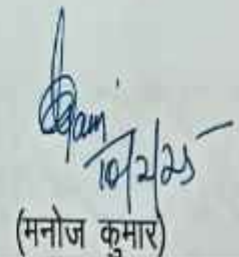 10/2/25
(मनोज कुमार)